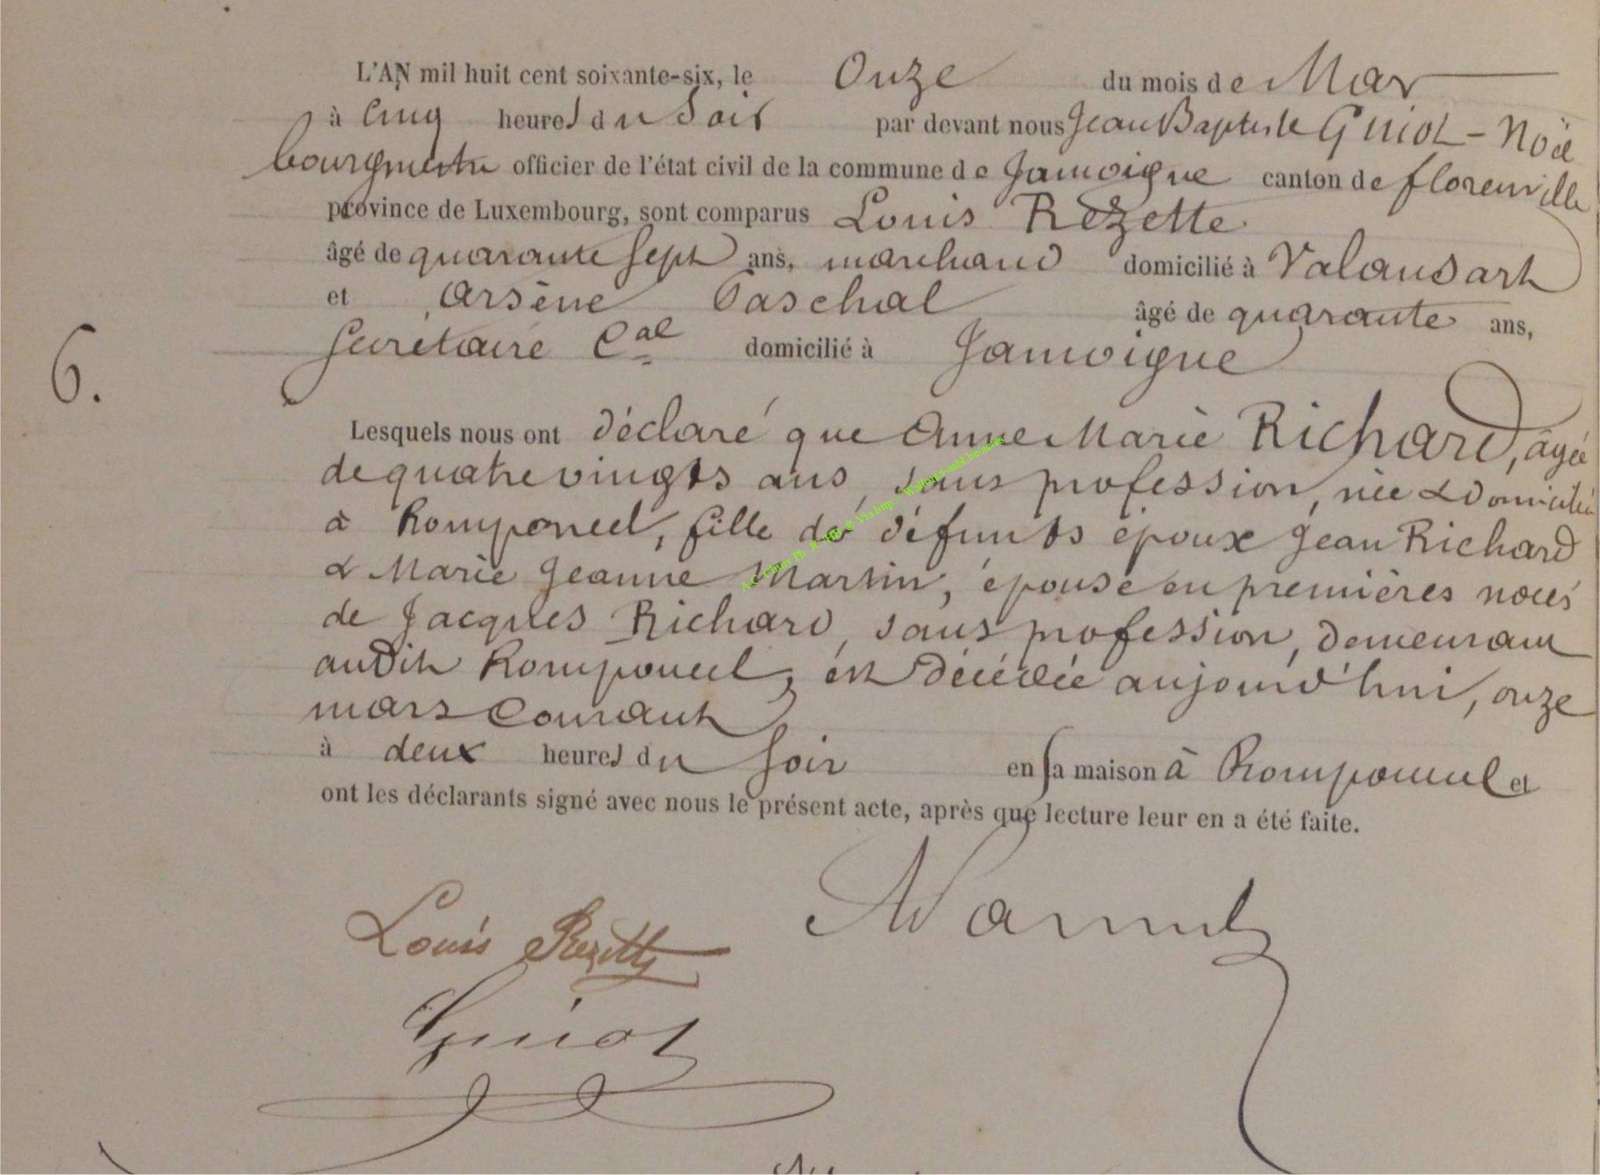 L'AN mil huit cent soixante-six, le Onze du mois de Mars
à Cinq heures du Soir par devant nous Jean Baptiste Guiot-Noël
bourgmestre officier de l'état civil de la commune de Jamoigne canton de florenville
province de Luxembourg, sont comparus Louis Rezette
âgé de quarante sept ans, marchand domicilié à Valansart
et Arsène Paschal âgé de quarante ans,
Secrétaire Cal domicilié à Jamoigne
6.
Lesquels nous ont déclaré que Anne Marie Richard, âgée
de quatre vingts ans, sans profession, née & domiciliée
à Romponcel, fille de défunts époux Jean Richard
& Marie Jeanne Martin, épouse en premières noces
de Jacques Richard, sans profession, demeurant
audit Romponcel, est décédée aujourd'hui, onze
mars Courant
à deux heures du Soir en sa maison à Romponcel et
ont les déclarants signé avec nous le présent acte, après que lecture leur en a été faite.
Louis Rezette
Guiot